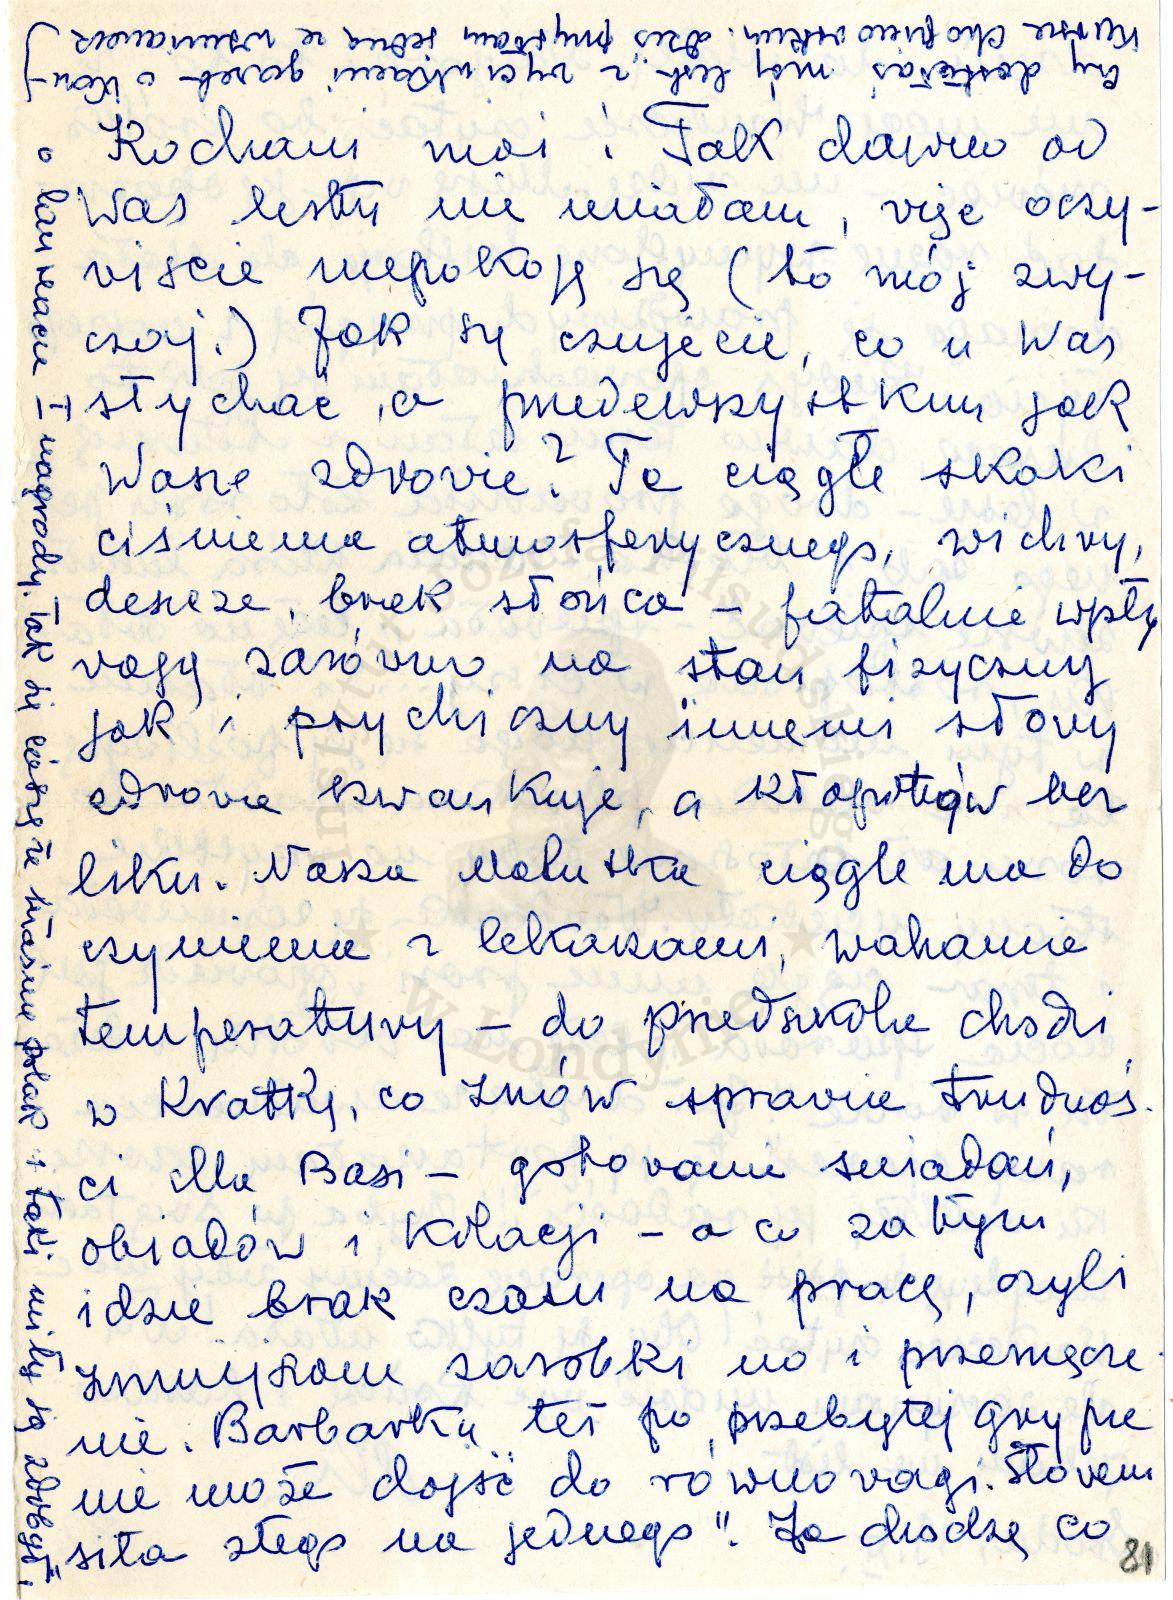 Czy dostałaś mój list z wycinkami gazet o Kon-
kursie Chopinowskim. dziś przesyłam jedną ze wzmiankach
o laureacie I nagrody. Tak się cieszę że właśnie Polak i taki miły ją zdobył!
Kochani moi! Tak dawno od
Was listu nie miałam, więc oczy-
wiście niepokoję się (to mój zwy-
czaj.) Jak się czujecie, co u Was
słychać, a przedewszystkim jak
Wasze zdrowie? Te ciągłe skoki
ciśnienia atmosferycznego, wichry,
deszcze, brak słońca – fatalnie wpły
wają zarówno na stan fizyczny
jak i psychiczny innemi słowy
zdrowie szwankuje, a kłopotów bez
liku. Nasza Malutka ciągle ma do
czynienia z lekarzami, wahanie
temperatury – do przedszkola chodzi
w kratkę, co znów sprawia trudnoś-
ci dla Basi – gotowanie śniadań,
obiadów i kolacji – a co za tym
idzie brak czasu na pracę, czyli
zmniejszone zarobki no i przemęcze-
nie. Barbarka też po przebytej grypie
nie może dojść do równowagi. Słowem
siła złego na jednego". Ja chodzę co
81
Instytut Józefa Piłsudskiego
w Londynie